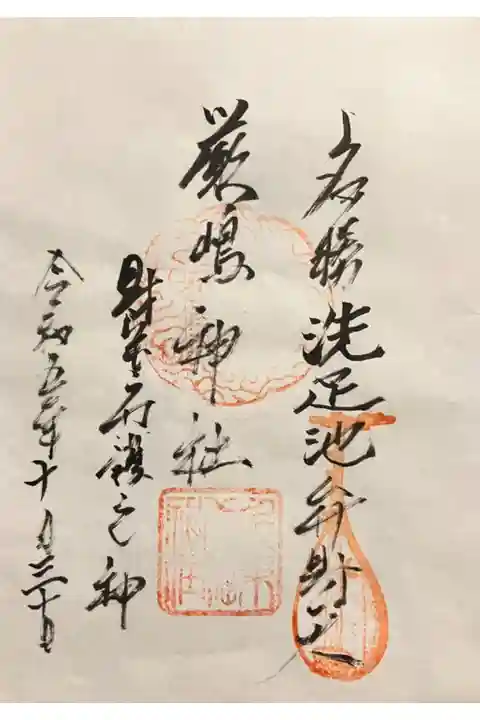 名勝洗足池弁財天
厳嶋神社
財宝守護之神
令和五年十月三十日